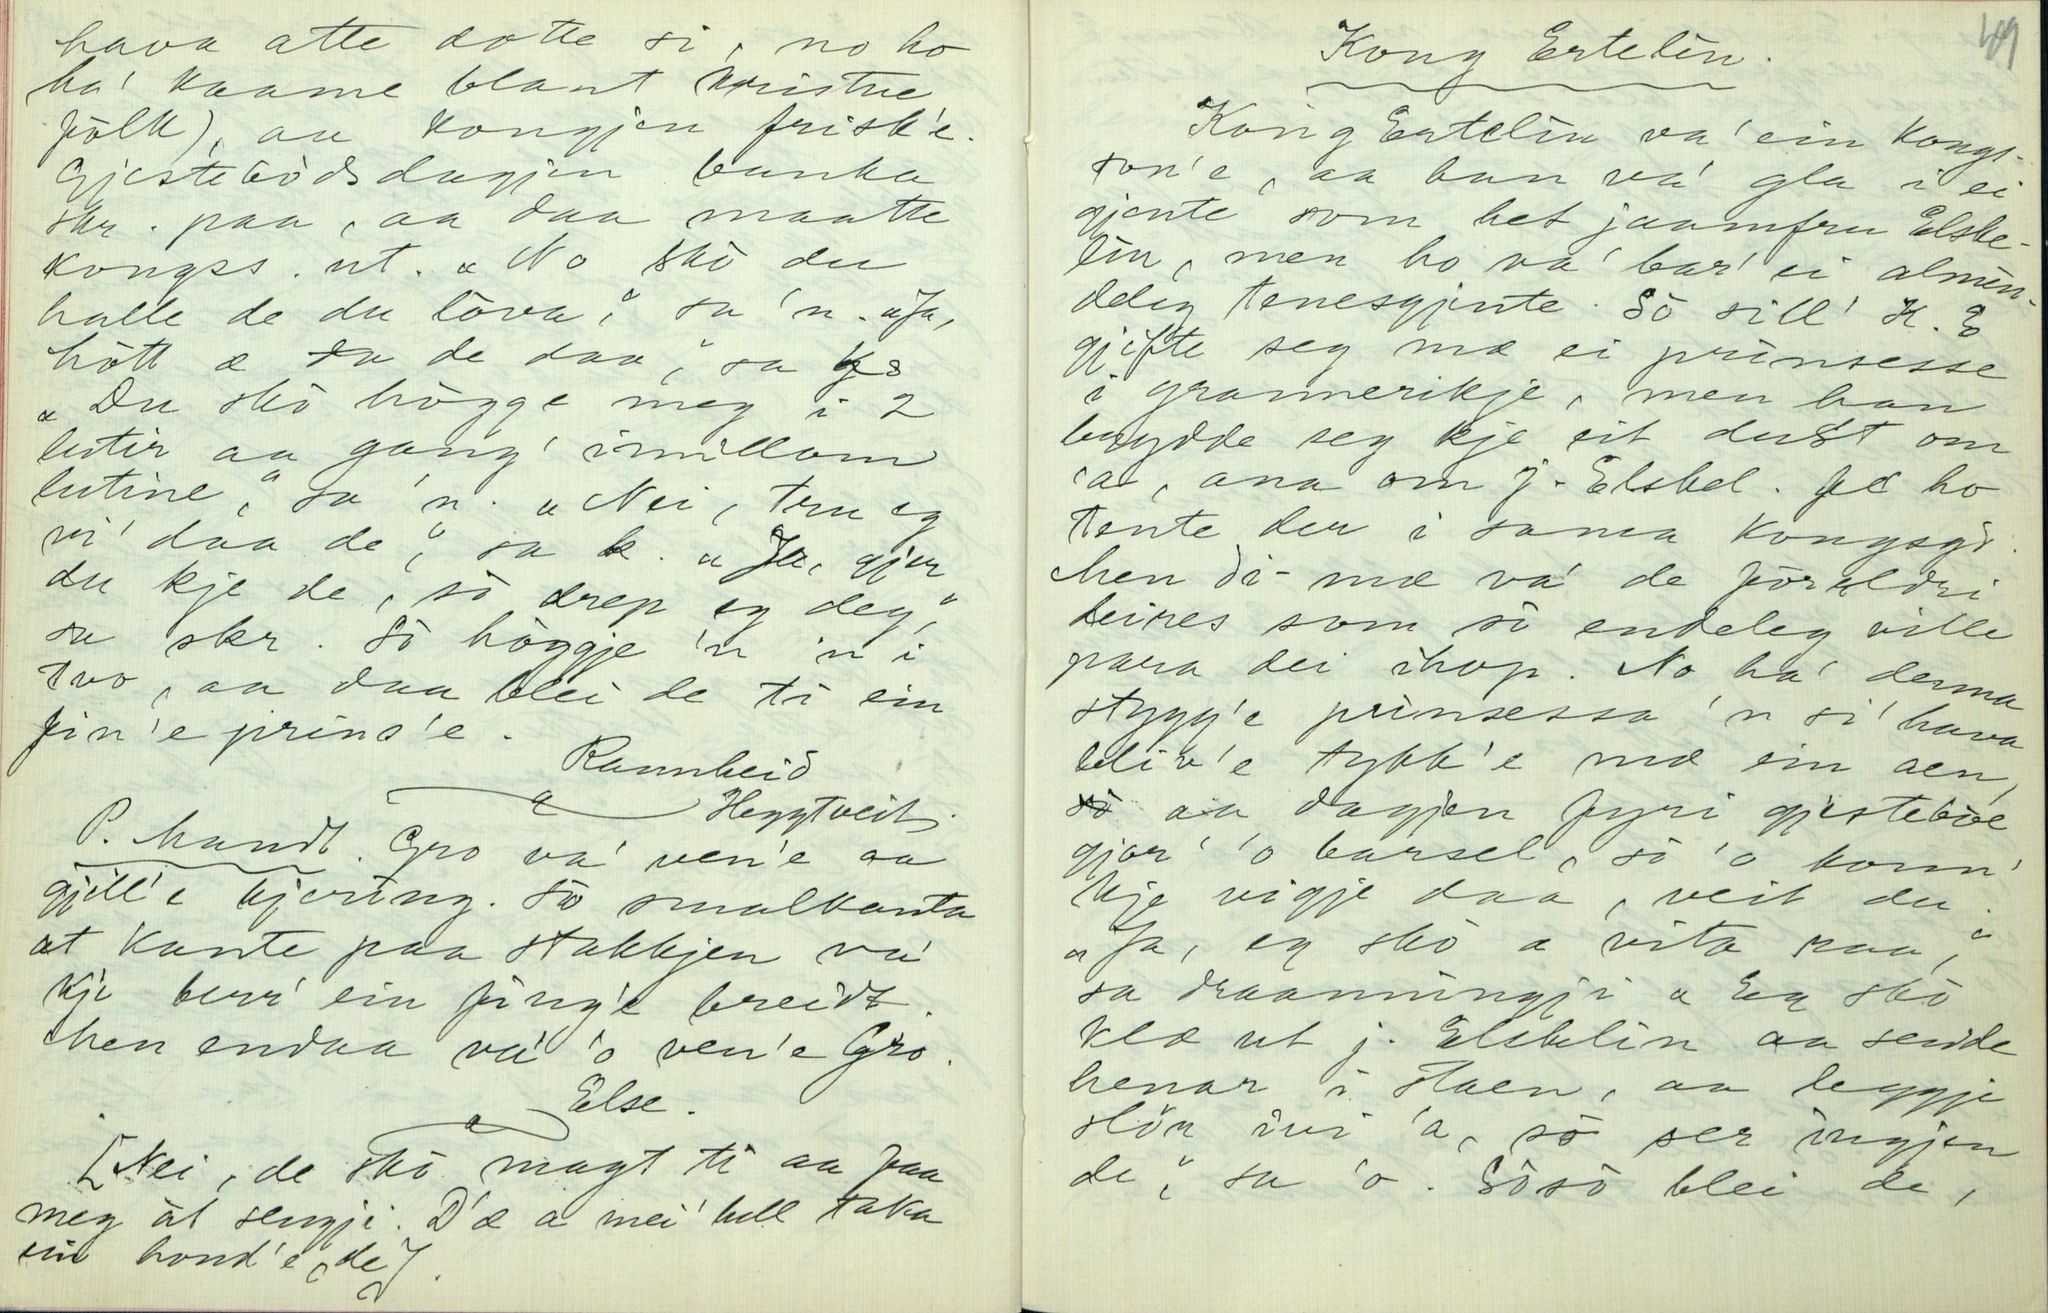 hava atte dotte si, no ho
ha' kaame blant kristne
fôlk), aa kongjen frisk'e.
Gjestebôdsdagjen banka
skr. paa, aa daa maatte
kongss. ut. "No skô du
halle de du lôva," sa 'n. "Ja,
hôtt æ da de daa," sa ks
"Du skô hôgge meg i 2
lutir aa gang' imillom
lutine," sa 'n. "Nei, tru eg
vi' daa de," sa k. "Ja, gjer
du kje de, sô drep eg deg,"
sa skr. Sô hôggje 'n 'n i
tvo, aa daa blei de ti ein
fin'e prins'e.
Rannheid
Heggtveit.
P. Mandt. Gro va' ven'e aa
gjill'e kjering. Sô smalkanta
at kante paa stakkjen va'
kje berr' ein fing'e breidt.
Men endaa va' 'o ven'e Gro.
Else.
[Nei, de skô magt ti aa faa
meg åt sengji. D'æ a mei' hell taka
ein hond'e, de].
49
Kong Ertelin.
Kông Ertelin va' ein kongs-
son'e, aa han va' gla i ei
gjente som het jaamfru Elske-
lin, men ho va' bar' ei almin-
deleg tenesgjente. Sô sill' K. E
gjifte seg mæ ei prinsesse
i grannerikje, men han
brydde seg kje eit dust om
'a, ana om j. Elskel. fe ho
tente der i sama kongsg.
Men di mæ va' de foreldri
deires som sô endeleg ville
para dei ihop. No ha' denna
stygg'e prinsessa 'n si' hava
bliv'e tykk'e mæ ein aen,
aa dagjen fyri gjestebôe
gjor' 'o barsel, sô 'o konn'
kje vigje daa, veit du.
"Ja, eg skô a vita raa,"
sa draanningji "Eg skô
klæ ut j. Elskelin aa sende
henar i staen, aa leggje
slôr ivi 'a, sô ser ingjen
de," sa 'o. Sôsô blei de,